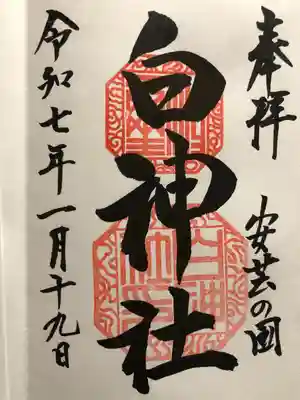 奉拝 安芸の国
白神社
令和七年一月十九日